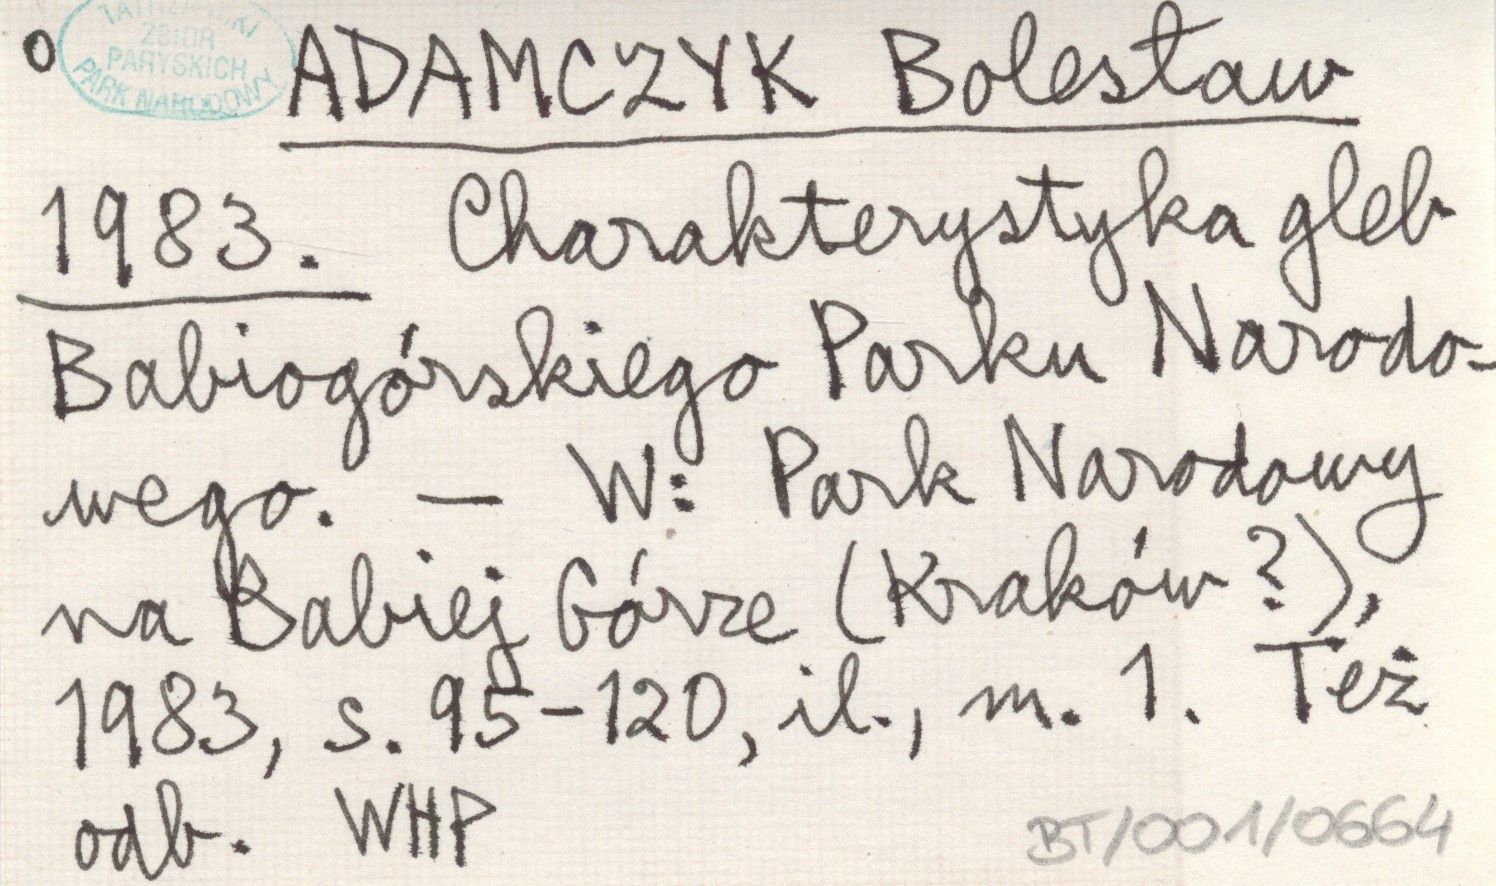 TATRZAŃSKI
ZBIÓR
PARYSKICH
PARK NARODOWY
o ADAMCZYK Bolesław
1983. Charakterystyka gleb
Babiogórskiego Parku Narodo-
wego. — W: Park Narodowy
na Babiej Górze (Kraków?),
1983, s. 95-120, il., m. 1. Też
odb. WHP
BT/001/0664